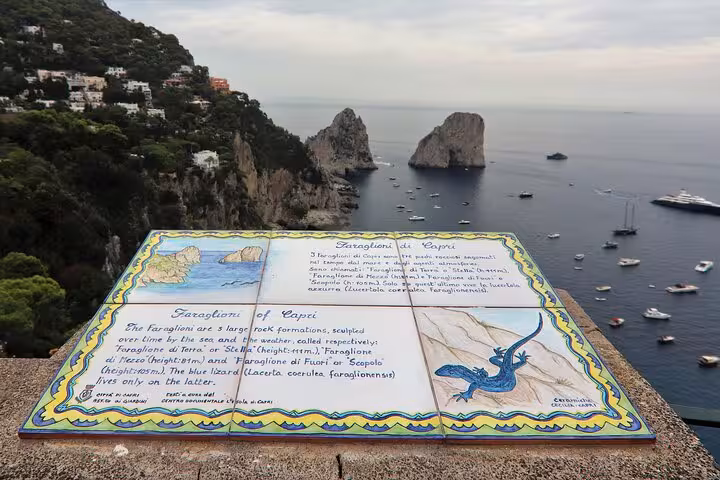 Faraglioni di Capri
I Faraglioni di Capri sono tre picchi rocciosi sagomati
nel tempo dal mare e dagli agenti atmosferici.
Sono chiamati: "Faraglione di Terra" o "Stella" (h.111m.),
"Faraglione di Mezzo" (h.81m.) e "Faraglione di Fuori" o
"Scopolo" (h.105m.). Solo su quest'ultimo vive la lucertola
azzurra (Lucertola coerulea Faraglionensis).
Faraglioni of Capri
The Faraglioni are 3 large rock formations, sculpted
over time by the sea and the weather, called respectively:
"Faraglione di Terra" or "Stella" (height:111m.), "Faraglione
di Mezzo" (height:81m) and "Faraglione di Fuori" or "Scopolo"
(height:105m.). The blue lizard (Lacerta coerulea, faraglionensis)
lives only on the latter.
CITTÀ DI CAPRI
testi a cura del
CENTRO DOCUMENTALE L'ISOLA DI CAPRI
Ceramiche:
CECILIA-CAPRI